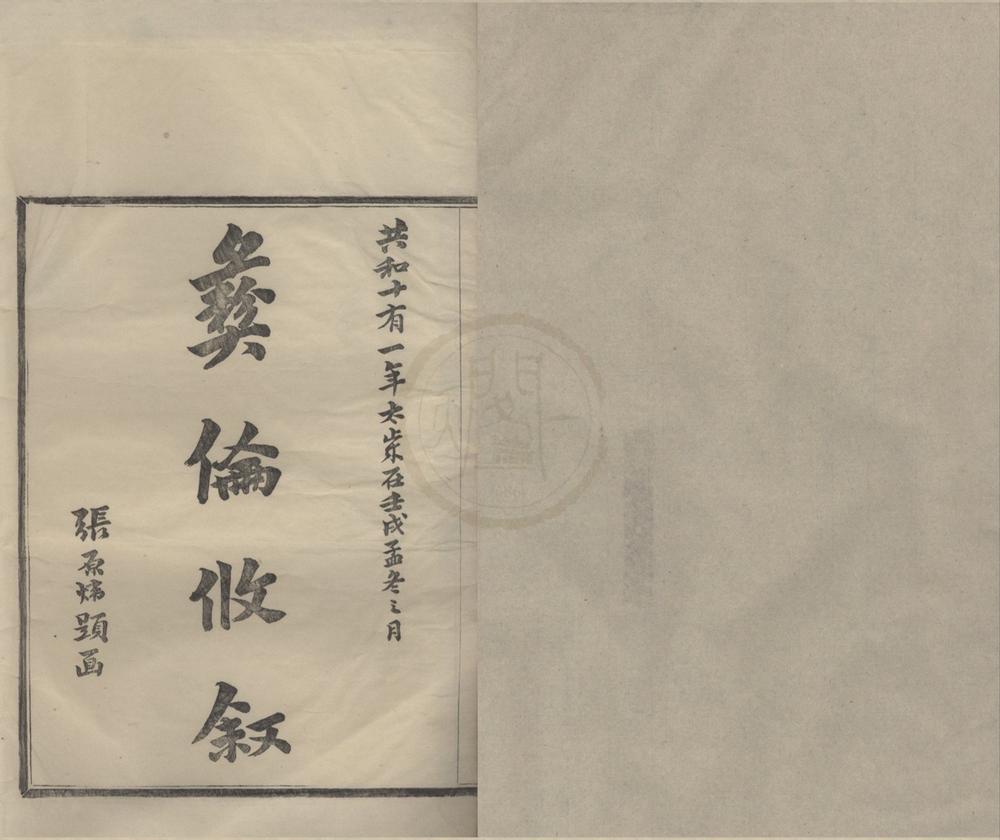 共和十有一年太歲在壬戌孟冬之月
彝倫攸敘
張原煒題耑